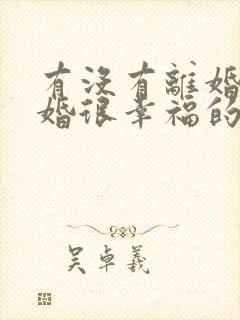 有沒有離婚
婚很幸福的
吳卓羲